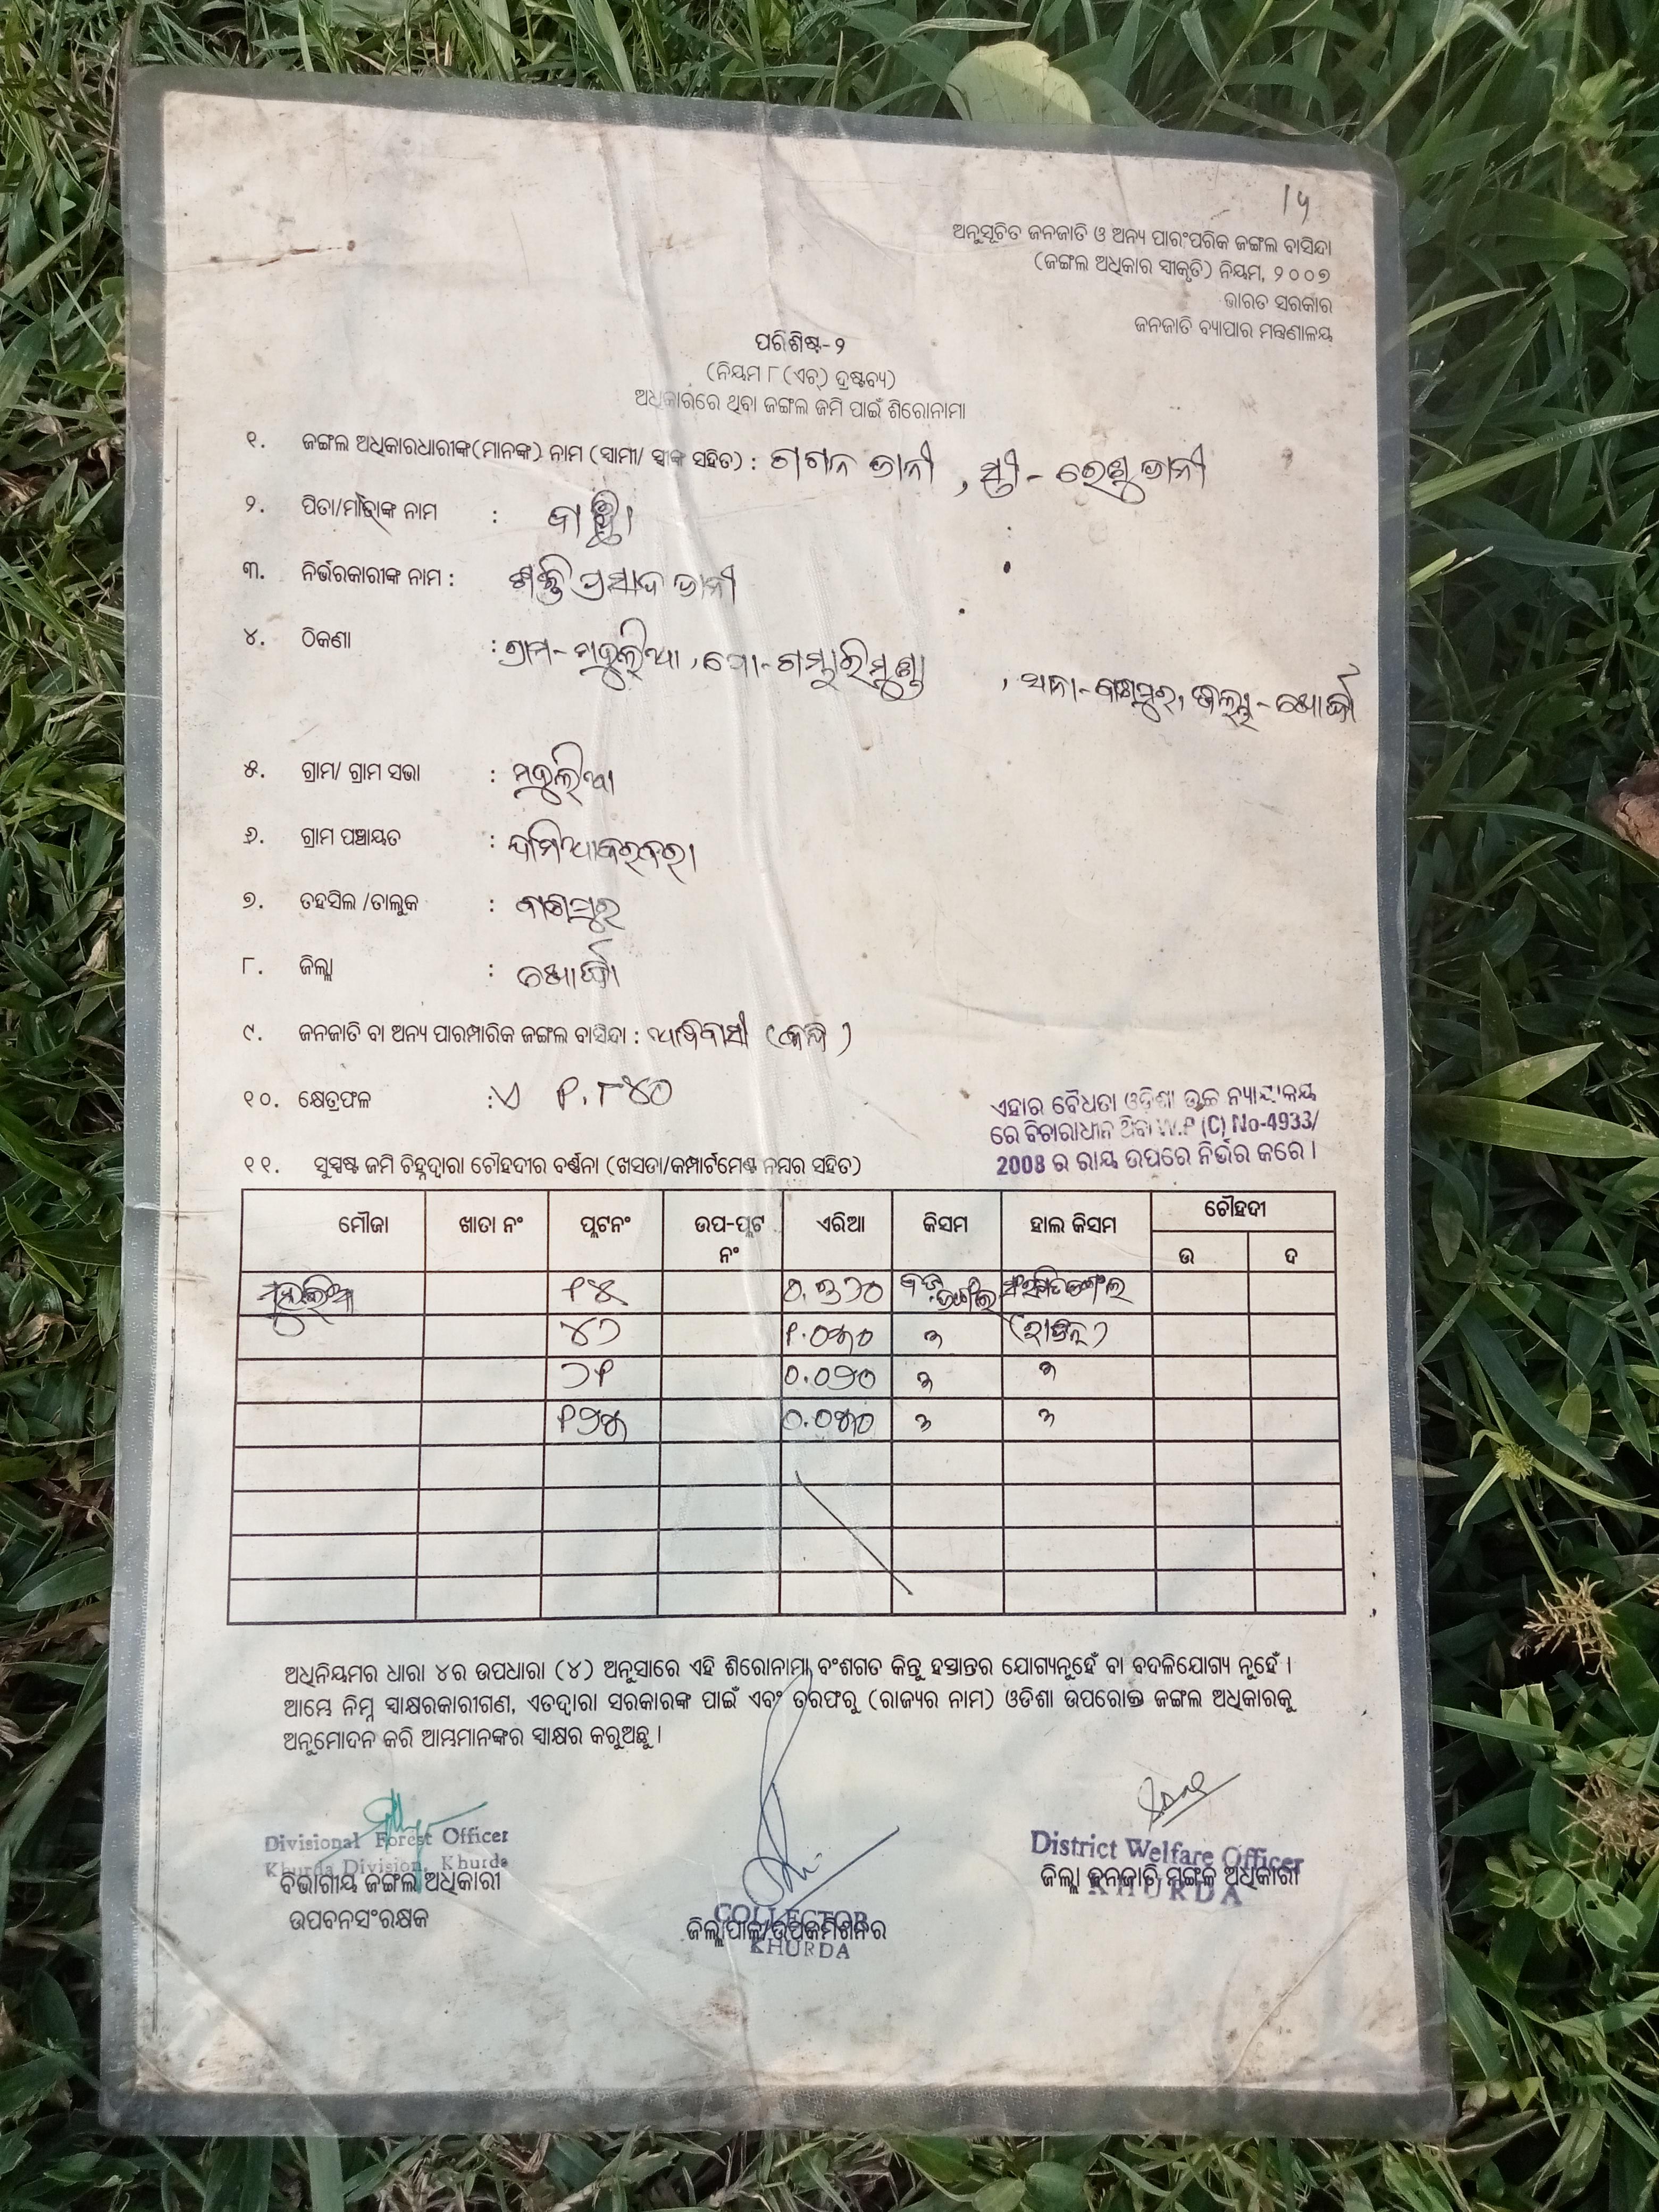 ୨୨
ଅନୁସୂଚିତ ଜନଜାତି ଓ ଅନ୍ୟ ପାରଂପରିକ ଜଙ୍ଗଲ ବାସିନ୍ଦା
(ଜଙ୍ଗଲ ଅଧିକାର ସ୍ୱୀକୃତି) ନିୟମ, ୨୦୦୭
ଭାରତ ସରକାର
ଜନଜାତି ବ୍ୟାପାର ମନ୍ତ୍ରଣାଳୟ
ପରିଶିଷ୍ଟ-୨
(ନିୟମ ୮(ଏଚ୍) ଦ୍ରଷ୍ଟବ୍ୟ)
ଅଧିକାରରେ ଥିବା ଜଙ୍ଗଲ ଜମି ପାଇଁ ଶିରୋନାମା
୧. ଜଙ୍ଗଲ ଅଧିକାରଧାରୀଙ୍କ(ମାନଙ୍କ) ନାମ (ସ୍ୱାମୀ/ ସ୍ତ୍ରୀଙ୍କ ସହିତ) : ଗଗନ ଜାନୀ , ସ୍ତ୍ରୀ - ରେଣୁ ଜାନୀ
୨. ପିତା/ମାତାଙ୍କ ନାମ :
୩. ନିର୍ଭରକାରୀଙ୍କ ନାମ : ଶକ୍ତି ପ୍ରସାଦ ଜାନୀ
୪. ଠିକଣା : ଗ୍ରାମ- ମହୁଲିଆ , ପୋ- ଗମ୍ଭାରିମୁଣ୍ଡା , ଥାନା- ବାଣପୁର, ଜିଲ୍ଲା - ଖୋର୍ଦ୍ଧା
୫. ଗ୍ରାମ/ ଗ୍ରାମ ସଭା : ମହୁଲିଆ
୬. ଗ୍ରାମ ପଞ୍ଚାୟତ :
୭. ତହସିଲ /ତାଲୁକ : ବାଣପୁର
୮. ଜିଲ୍ଲା : ଖୋର୍ଦ୍ଧା
୯. ଜନଜାତି ବା ଅନ୍ୟ ପାରମ୍ପାରିକ ଜଙ୍ଗଲ ବାସିନ୍ଦା : ଆଦିବାସୀ (କନ୍ଧ)
୧୦. କ୍ଷେତ୍ରଫଳ : ଏ ୧.୮୪୦
ଏହାର ବୈଧତା ଓଡ଼ିଶା ଉଚ୍ଚ ନ୍ୟାୟାଳୟ
ରେ ବିଚାରାଧୀନ ଥିବା W.P (C) No-4933/
2008 ର ରାୟ ଉପରେ ନିର୍ଭର କରେ ।
୧୧. ସୁସ୍ପଷ୍ଟ ଜମି ଚିହ୍ନଦ୍ୱାରା ଚୌହଦୀର ବର୍ଣ୍ଣନା (ଖସଡା/କମ୍ପାର୍ଟମେଣ୍ଟ ନମ୍ବର ସହିତ)
ମୌଜା ଖାତା ନଂ ପ୍ଲଟନଂ ଉପ-ପ୍ଲଟ ନଂ ଏରିଆ କିସମ ହାଲ କିସମ ଚୌହଦୀ
ଉ ଦ
ମହୁଲିଆ ୧୪ ୦.୭୨୦
୪୨ ୧.୦୩୦ ୩
୨୧ ୦.୦୬୦ ୩ ୩
୦.୦୩୦ ୩ ୩
ଅଧିନିୟମର ଧାରା ୪ର ଉପଧାରା (୪) ଅନୁସାରେ ଏହି ଶିରୋନାମା ବଂଶଗତ କିନ୍ତୁ ହସ୍ତାନ୍ତର ଯୋଗ୍ୟନୁହେଁ ବା ବଦଳିଯୋଗ୍ୟ ନୁହେଁ ।
ଆମ୍ଭେ ନିମ୍ନ ସ୍ୱାକ୍ଷରକାରୀଗଣ, ଏତଦ୍ୱାରା ସରକାରଙ୍କ ପାଇଁ ଏବଂ ତରଫରୁ (ରାଜ୍ୟର ନାମ) ଓଡିଶା ଉପରୋକ୍ତ ଜଙ୍ଗଲ ଅଧିକାରକୁ
ଅନୁମୋଦନ କରି ଆମ୍ଭମାନଙ୍କର ସ୍ୱାକ୍ଷର କରୁଅଛୁ ।
Divisional Forest Officer
Khurda Division, Khurda
ବିଭାଗୀୟ ଜଙ୍ଗଲ ଅଧିକାରୀ
ଉପବନସଂରକ୍ଷକ
COLLECTOR
ଜିଲ୍ଲାପାଳ/ଉପକମିଶନର
KHURDA
District Welfare Officer
ଜିଲ୍ଲା ଜନଜାତି ମଙ୍ଗଳ ଅଧିକାରୀ
KHURDA